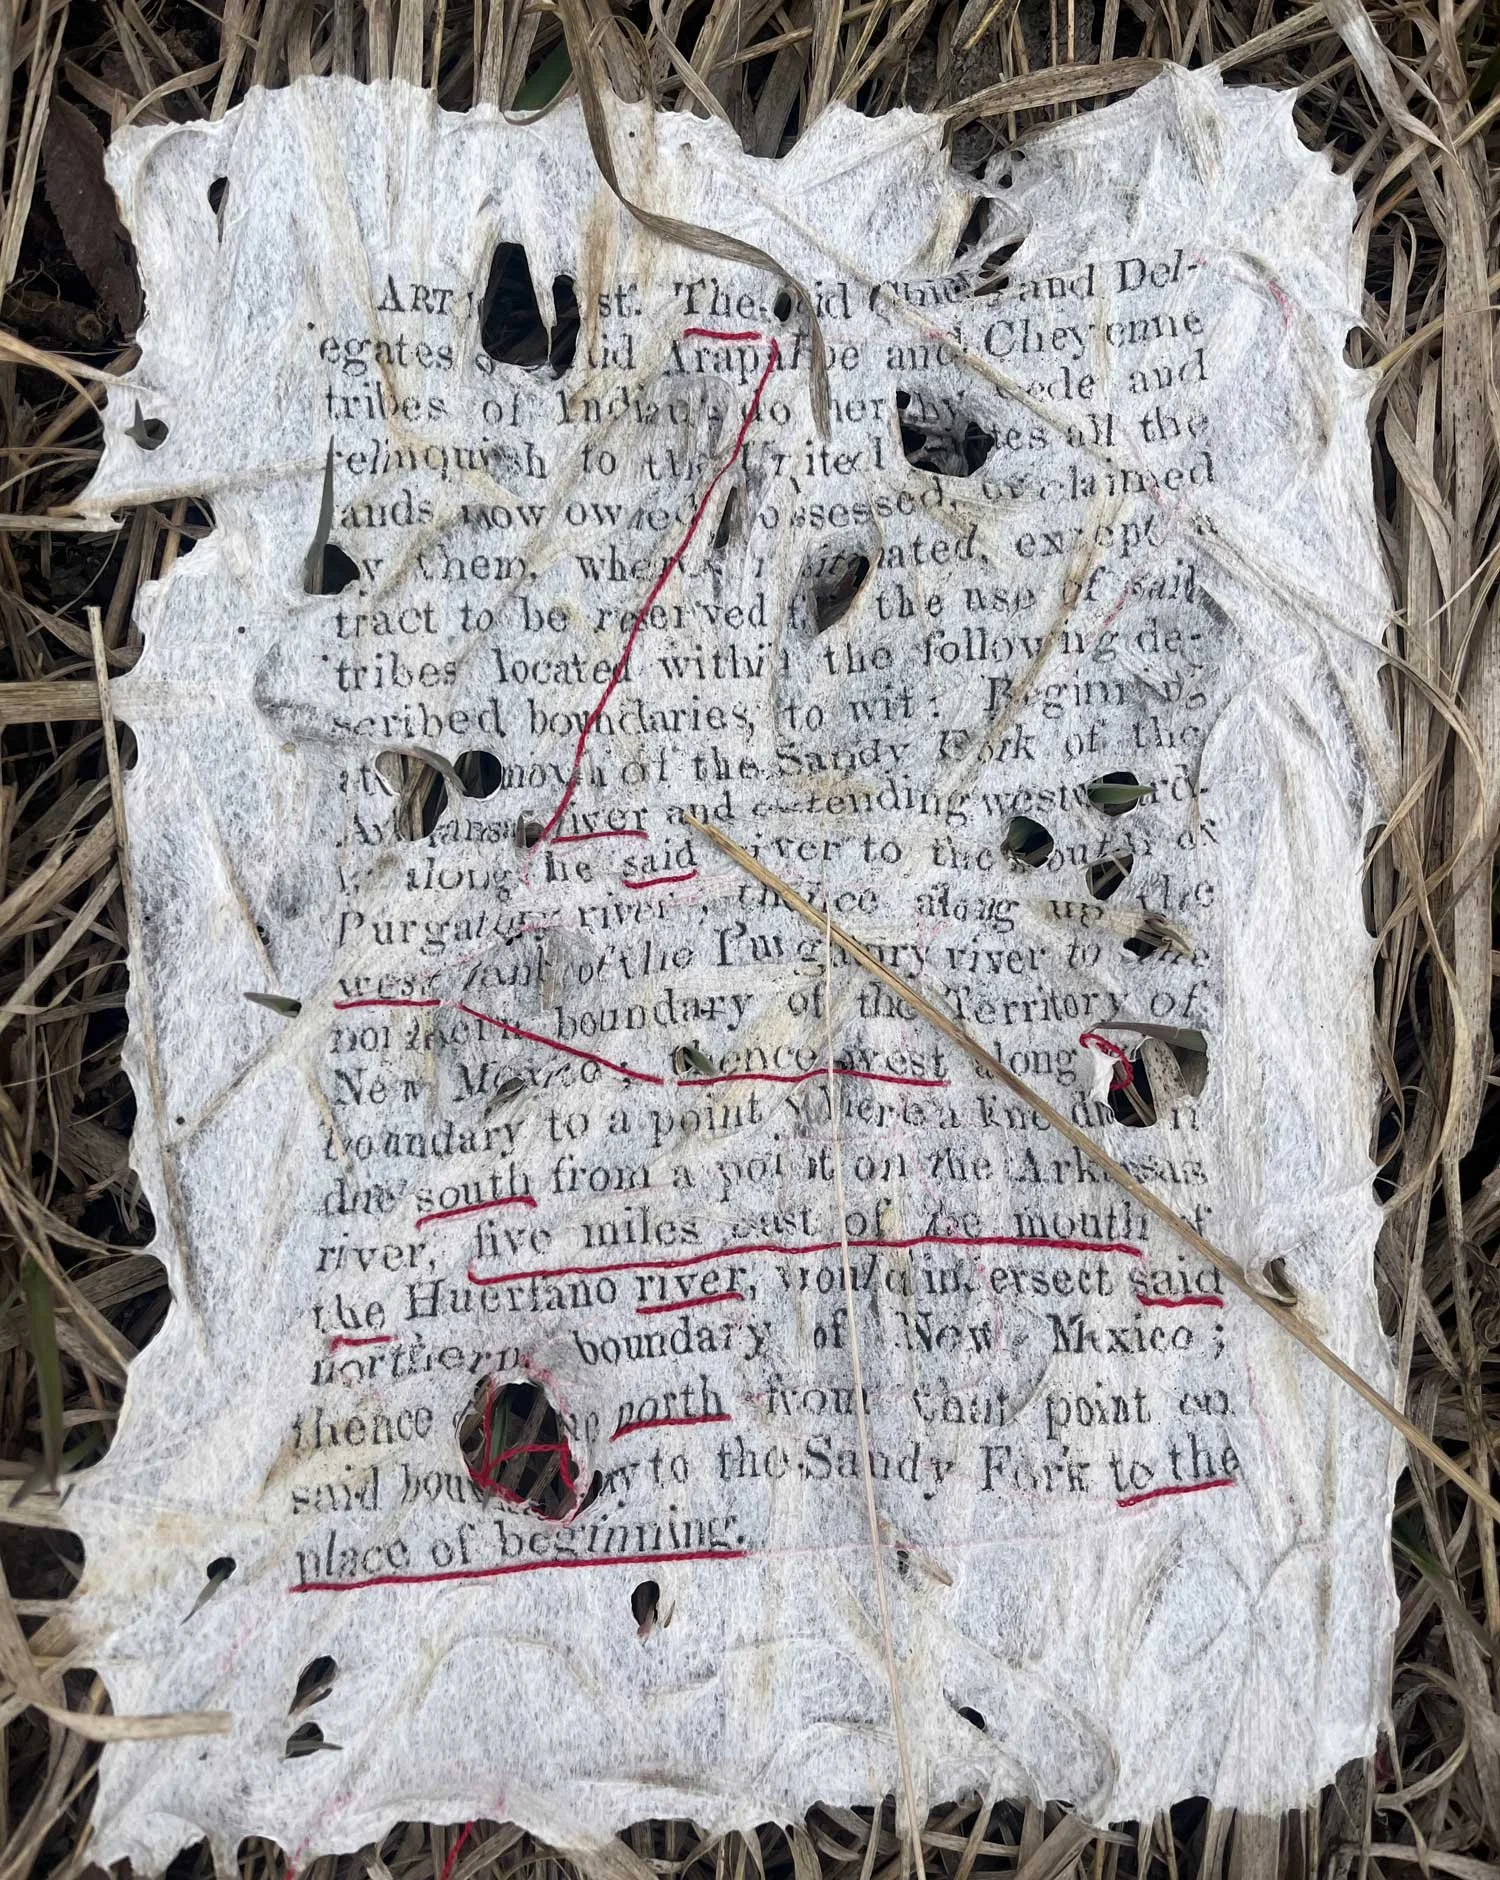 ART st. The id Chiefs and Del-
egates id Arapahoe and Cheyenne
tribes of Indians do hereby cede and
relinquish to the United tes all the
lands now owned, possessed, or claimed
by them, wher situated, except a
tract to be reserved for the use of said
tribes located within the following de-
scribed boundaries, to wit: Beginning
at mouth of the Sandy Fork of the
Arkansas river and extending westward-
ly along the said river to the mouth of
Purgatory river; thence along up the
west bank of the Purgatory river to the
northern boundary of the Territory of
New Mexico; thence west along
boundary to a point where a line drawn
due south from a point on the Arkansas
river, five miles east of the mouth of
the Huerfano river, would intersect said
northern boundary of New Mexico;
thence north from that point on
said boundary to the Sandy Fork to the
place of beginning.